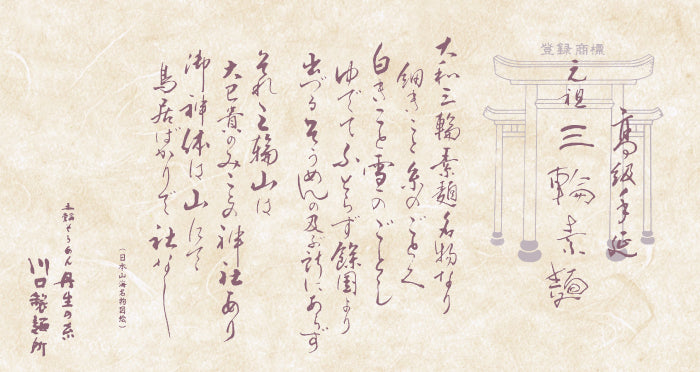 登録商標
高級手延
元祖
三輪素麺
大和三輪素麺名物なり
細きこと糸のごとく
白きこと雪のごとし
ゆでてふとらず餘國より
出づるそうめんの及ぶ所にあらず
それ三輪山は
大己貴のみことの神社あり
御神体は山にて
鳥居ばかりで社なし
(日本山海名物図絵)
三輪そうめん 丹生の糸
川口製麺所